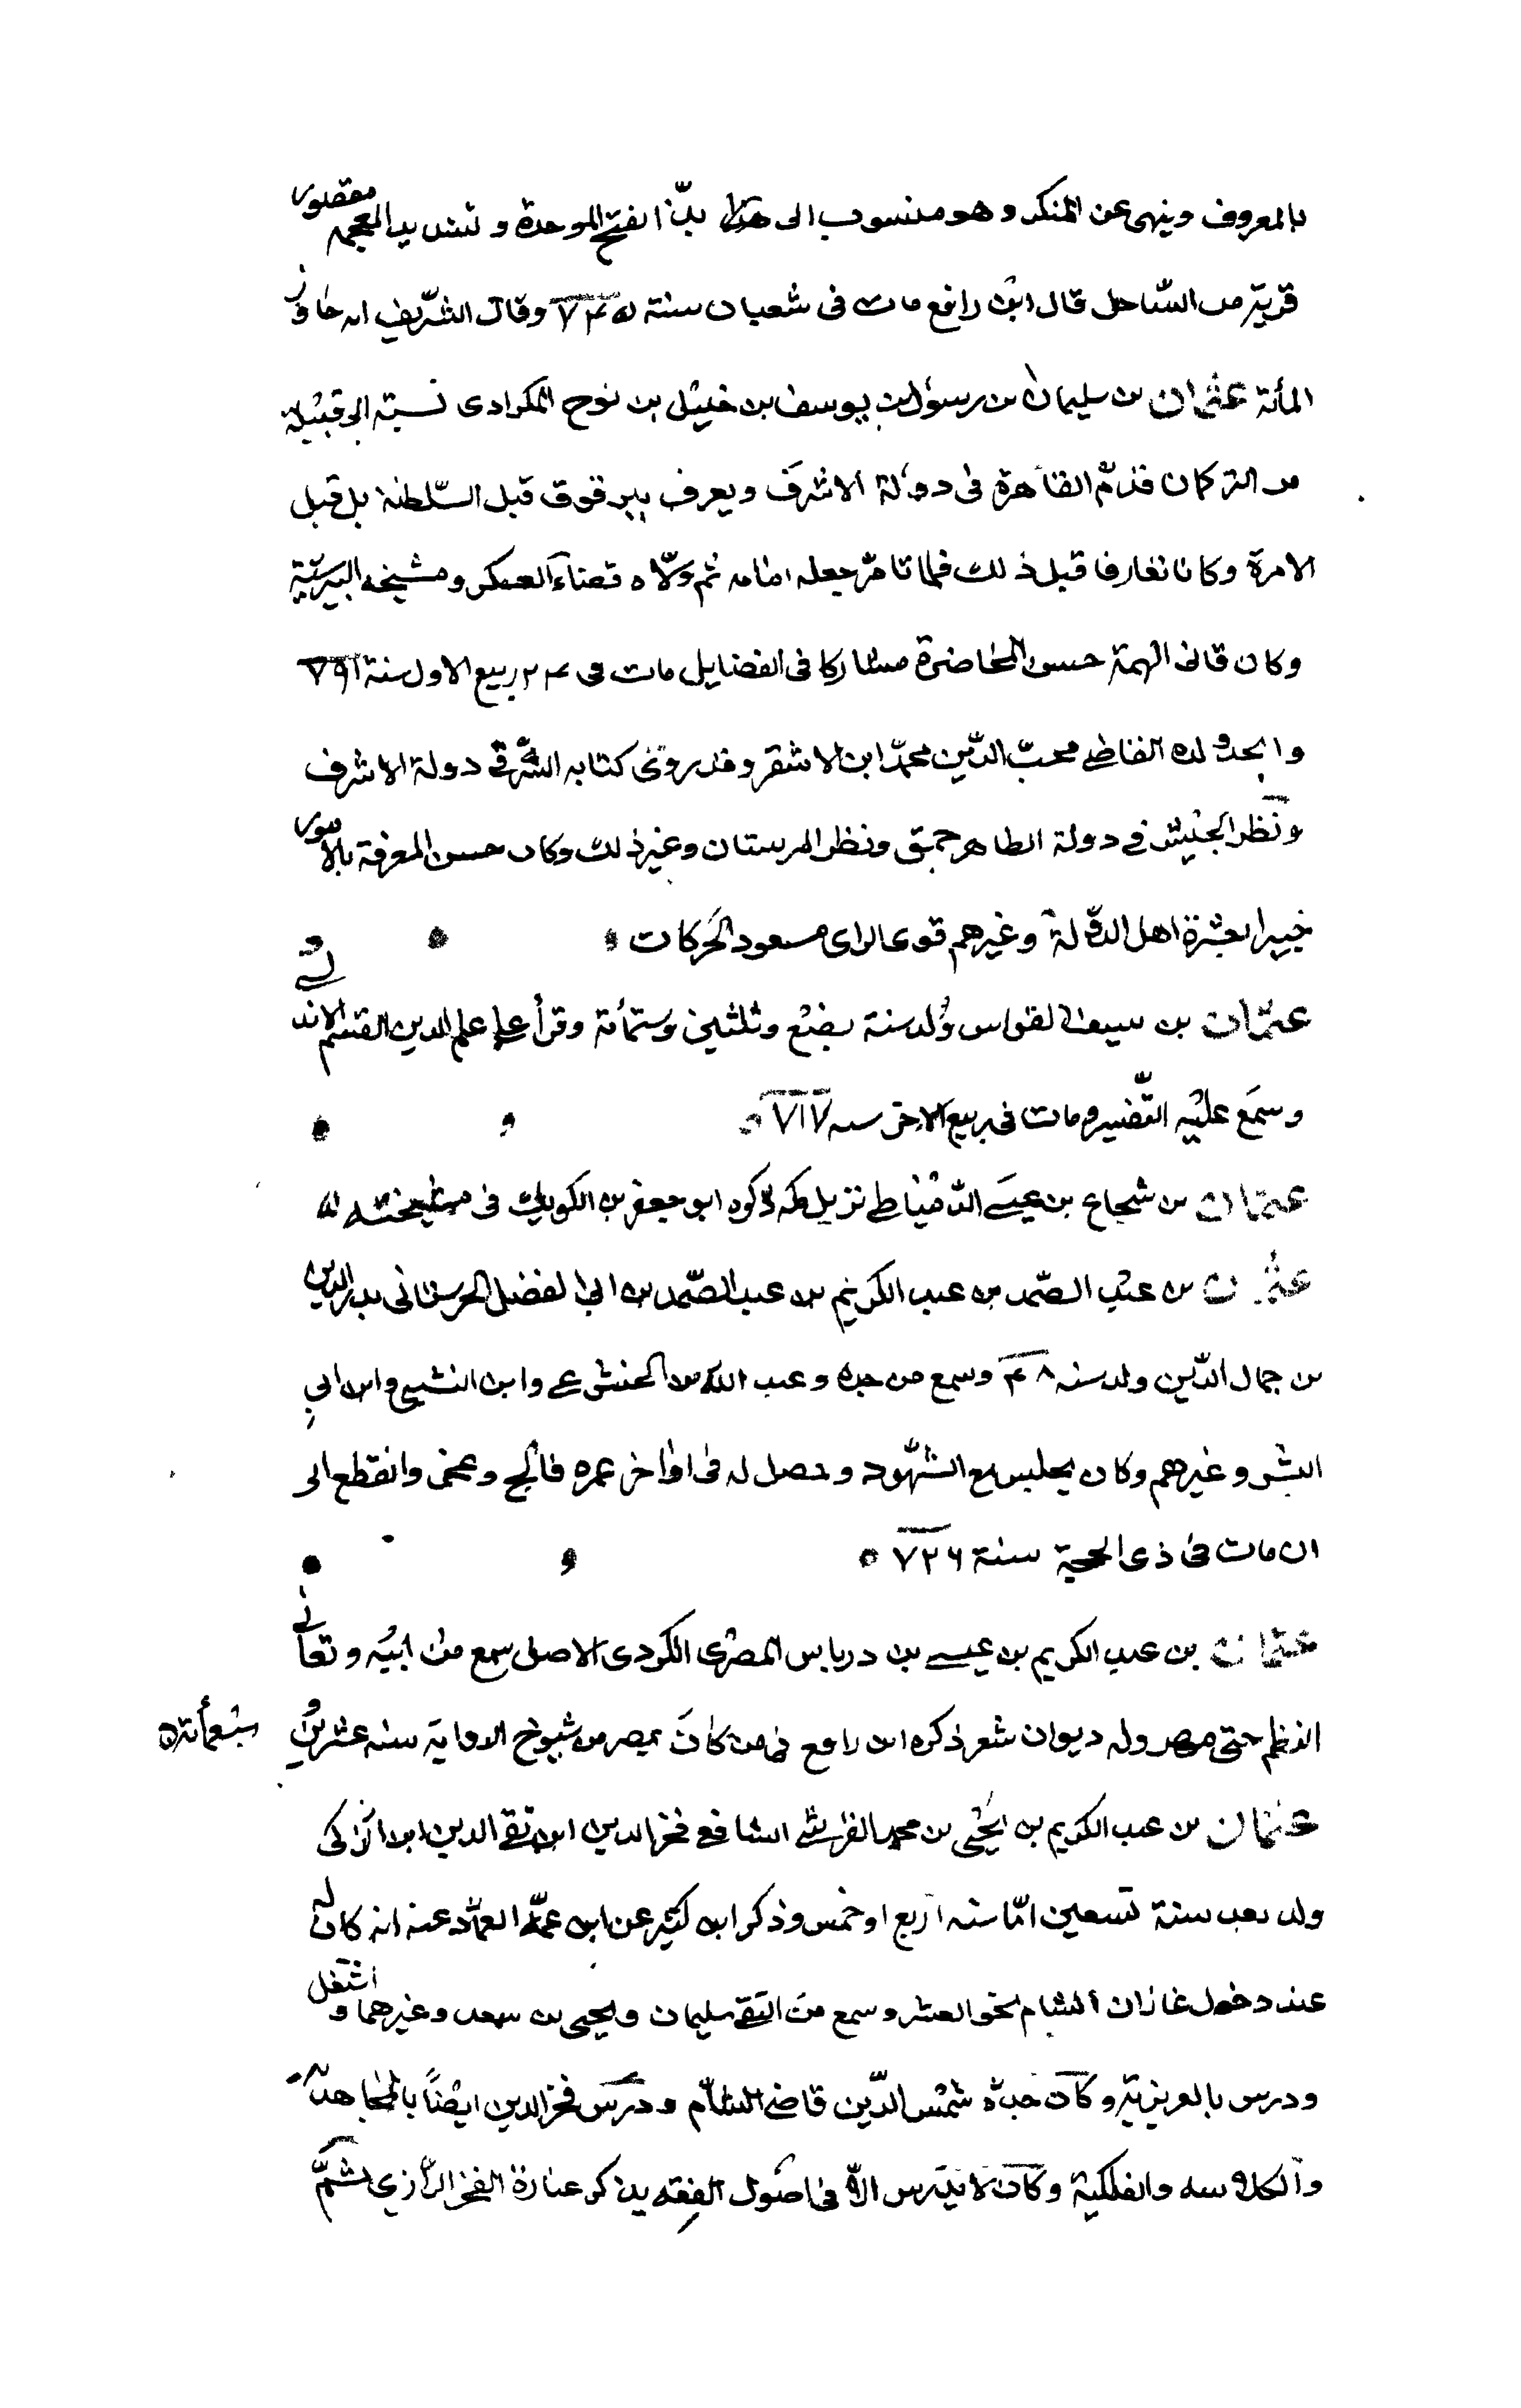 بالمعروف وينهى عن المنكر وهو منسوب الى بذّا بفتح الموحدة وتشديد المعجمه مقصور
قرية من السّاحل قال ابن رافع مات فى شعبان سنة ٧٣٥ وقال الشّريف انه جاوز
المأئة عثمان بن سليمان بن رسول بن يوسف بن خليل بن نوح الكرادى نسبة الى قبيلة
من التركمان قدم القاهرة فى دولة الاشرف ويعرف ببرقوق قبل السّلطنة بل قبل
الامرة وكانا تعارفا قبل ذلك فلما تامّر جعله امامه ثم ولّاه قضاء العسكر ومشيخه البيبرسيّة
وكان قائ الهمة حسن المحاضرة مشاركا فى الفضايل مات فى ٢٤ ربيع الاول سنة ٧٩١
وانجد ولده القاضى محبّ الدّين محمّد ابن الاشقر وقد روى كتابه السّر فى دولة الاشرف
ونظر الجيش فى دولة الظاهر جمق ونظر المرستان وغير ذلك وكان حسن المعرفة بالامور
خبيرا بعشرة اهل الدولة وغيرهم قوى الراى مسعود الحركات
عثمان بن سيف القواس ولد سنة بضع وثلثين وستمأئة وقرأ على علم الدين القسم الاندلسى
وسمع عليه التّفسير ومات فى ربيع الاخر سنه ٧١٧
عثمان بن شجاع بن عيسى الدمياطى نزيل مكه ذكره ابو جعفر بن الكويك فى مشيخته
عثمان بن عبد الصّمد بن عبد الكريم بن عبد الصّمد بن ابى الفضل الحرستانى بدر الدين
بن جمال الدّين ولد سنه ٤٨ وسمع من جده وعبد الله بن الخشوعى وابن النشبى وابن ابى
اليسر وغيرهم وكان يجلس مع الشّهود وحصل له فى اواخر عمره فالج وعجز وانقطع الى
ان مات فى ذى الحجة سنة ٧٢٦
عثمان بن عبد الكريم بن عيسى بن درباس المصرى الكردى الاصل سمع من ابيه وتعانى
النظم حتى مهر وله ديوان شعر ذكره ابن رافع فيمن كان بمصر من شيوخ الرواية سنه عشرين وسبعمأئة
عثمان بن عبد الكريم بن يحيى بن محمد القرشى الشافعى فخر الدين ابن تقى الدين ابن الزكى
ولد بعد سنة تسعين امّا سنه اربع او خمس وذكر ابن كثير عن ابن عمّه العماد عنه انه كان له
عند دخول غازان الشام نحو العشر وسمع من التقى سليمان ويحيى بن سعد وغيرهما واشتغل
ودرس بالعزيزية وكان جده شمس الدّين قاضى الشام ودرس فخر الدين ايضاً بالمجاهدية
والكلاسه والفلكية وكان لا يدرس الّا فى اصول الفقه يذكر عبارة الفخر الرّازى ثم